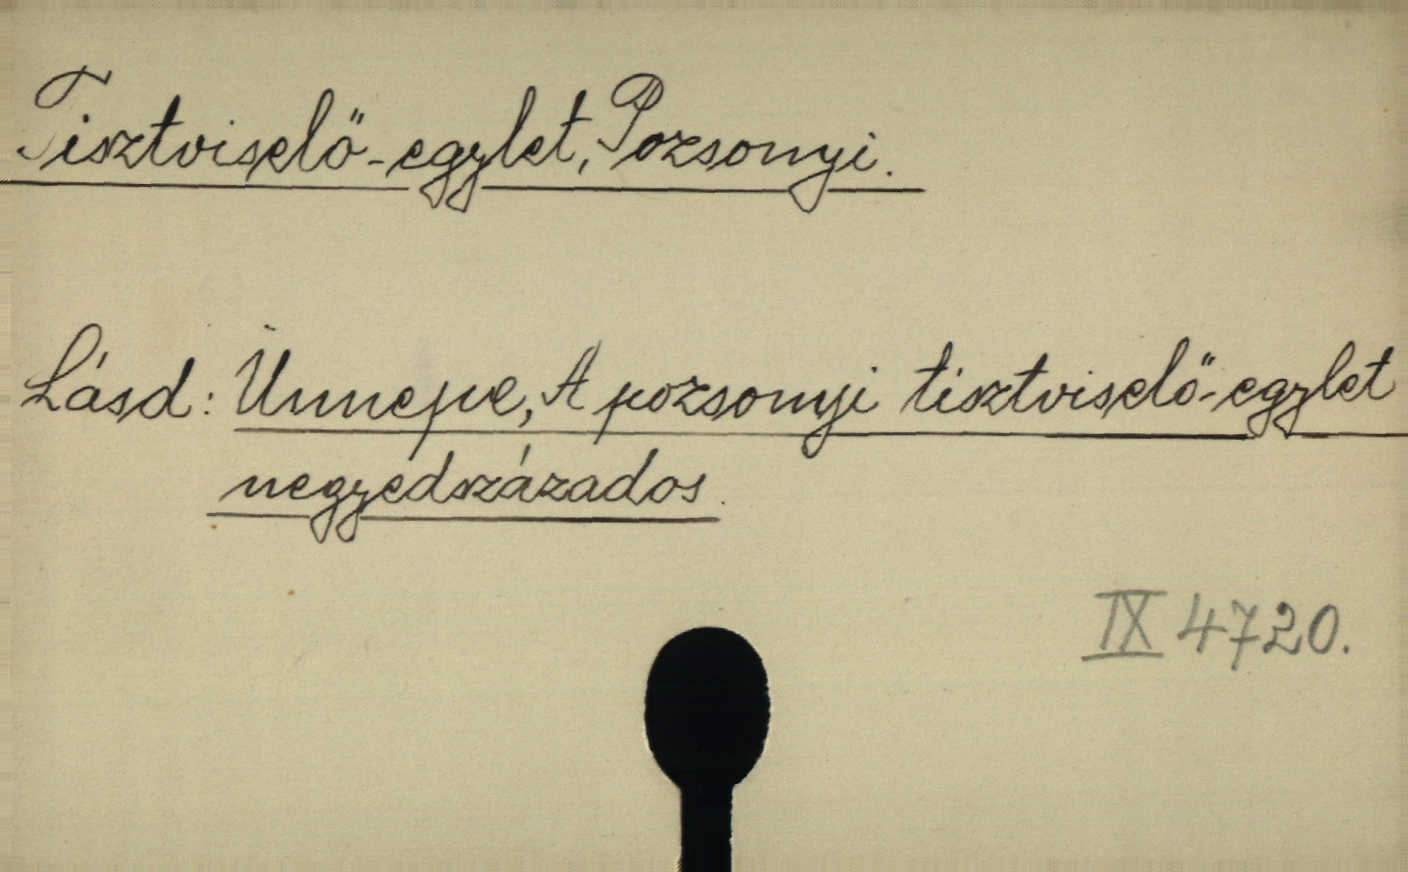 Tisztviselő-egylet, Pozsonyi.
Lásd: Ünnepe, A pozsonyi tisztviselő-egylet
negyedszázados.
IX 4720.